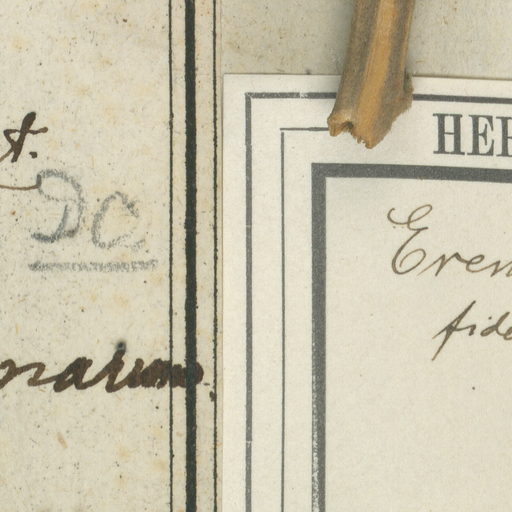 t.
DC.
narum
HER
Erem
fide